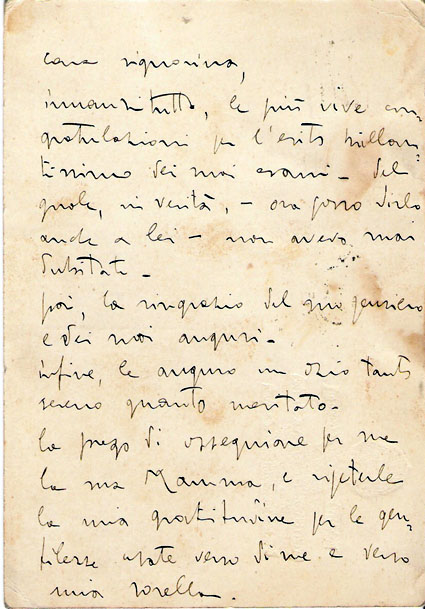 cara signorina,
innanzitutto, le più vive con-
gratulazioni per l'esito brillan-
tissimo dei suoi esami - del
quale, in verità, - ora posso dirlo
anche a lei - non avevo mai
dubitato -
poi, la ringrazio del suo pensiero
e dei suoi auguri -
infine, le auguro un ozio tanto
sereno quanto meritato -
la prego di ossequiare per me
la sua Mamma, e ripeterle
la mia gratitudine per le gen-
tilezze usate verso di me e verso
mia sorella.